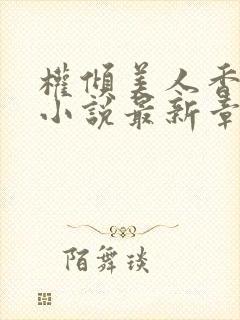 權傾美人香
小說最新章
陌舞琰